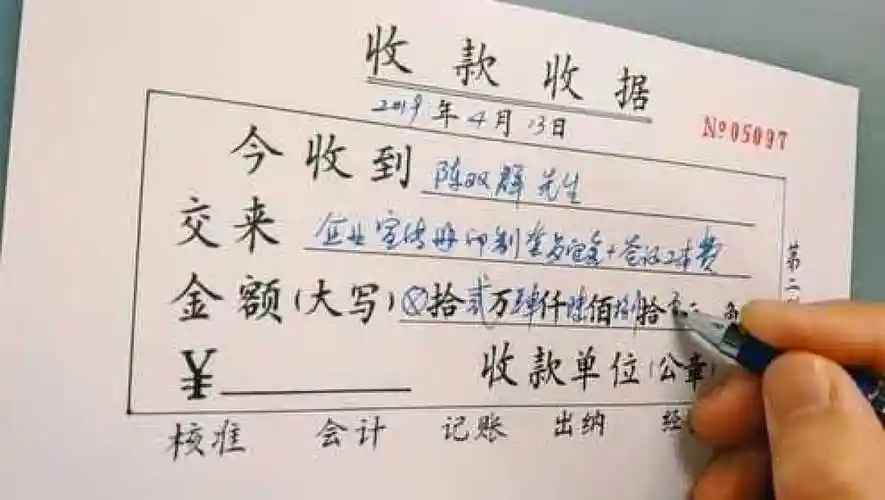 收款收据
2019年4月13日
№05097
今收到 陈双群 先生
交来 企业宣传册印刷 + 费
金额(大写)⊗拾贰万肆仟陆佰捌拾
¥ 收款单位(公章)
核准 会计 记账 出纳 经
第二